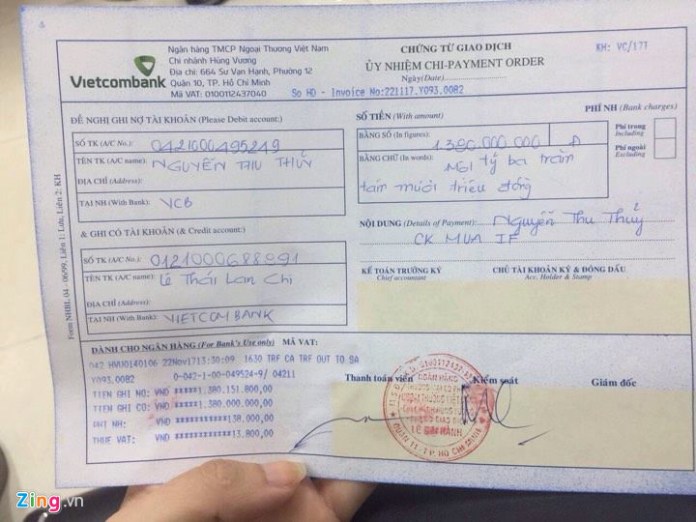 Vietcombank
Ngân hàng TMCP Ngoại Thương Việt Nam
Chi nhánh Hùng Vương
Địa chỉ: 664 Sư Vạn Hạnh, Phường 12
Quận 10, TP. Hồ Chí Minh
Mã VAT: 0100112437040
CHỨNG TỪ GIAO DỊCH
ỦY NHIỆM CHI-PAYMENT ORDER
Ngày (Date)
KH: VC/17T
So HD - Invoice No:221117.Y093.0082
ĐỀ NGHỊ GHI NỢ TÀI KHOẢN (Please Debit account:)
SỐ TK (A/C No.): 0421000495249
TÊN TK (A/C name): NGUYỄN THU THỦY
ĐỊA CHỈ (Address):
TẠI NH (With Bank): VCB
& GHI CÓ TÀI KHOẢN (& Credit account:)
SỐ TK (A/C No.): 0121000688991
TÊN TK (A/C name): Lê Thái Lan Chi
ĐỊA CHỈ (Address):
TẠI NH (With Bank): VIETCOMBANK
SỐ TIỀN (With amount)
BẰNG SỐ (In figures): 1.380.000.000 Đ
BẰNG CHỮ (In words): Một tỷ ba trăm
tám mươi triệu đồng
PHÍ NH (Bank charges)
Phí trong
Including
Phí ngoài
Excluding
NỘI DUNG (Details of Payment): Nguyễn Thu Thủy
CK MUA IF
KẾ TOÁN TRƯỞNG KÝ
Chief accountant
CHỦ TÀI KHOẢN KÝ & ĐÓNG DẤU
Acc. Holder & Stamp
Form NHBL 04 - 06/99, Liên 1: Lưu, Liên 2: KH
DÀNH CHO NGÂN HÀNG (For Bank's Use only) MÃ VAT:
042 HVU0140106 22Nov1713:30:09 1630 TRF CA TRF OUT TO SA
Y093.0082 0-042-1-00-049524-9/ 04211
TIEN GHI NO: VND *****1.380.151.800,00
TIEN GHI CO: VND *****1.380.000.000,00
VND *********138.000,00
THUE VAT: VND **********13.800,00
Thanh toán viên
Kiểm soát
Giám đốc
Zing.vn